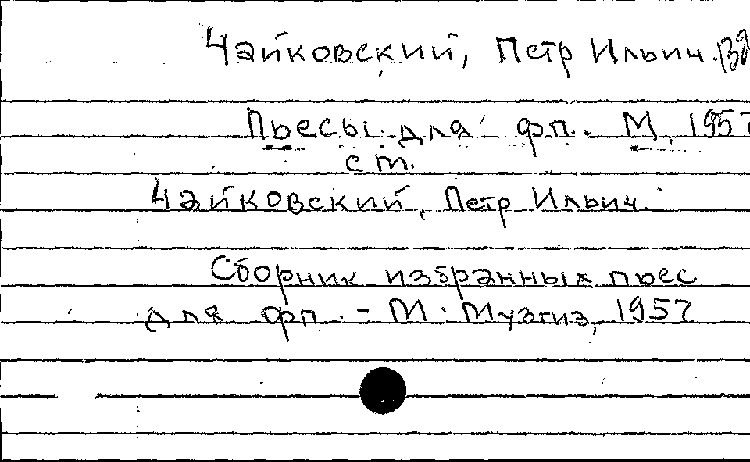 Чайковский, Петр Ильич.
Пьесы для фп. М, 1957
ст.
Чайковский, Петр Ильич.
Сборник избранных пьес
для фп. - М. Музгиз, 1957